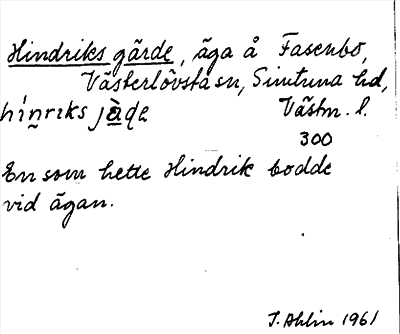 Hindriks gärde, äga å Fasenbo,
Västerlövsta sn, Simtuna hd,
hínriks jàɖe Västm. l.
300
En som hette Hindrik bodde
vid ägan.
J. Ahlin 1961